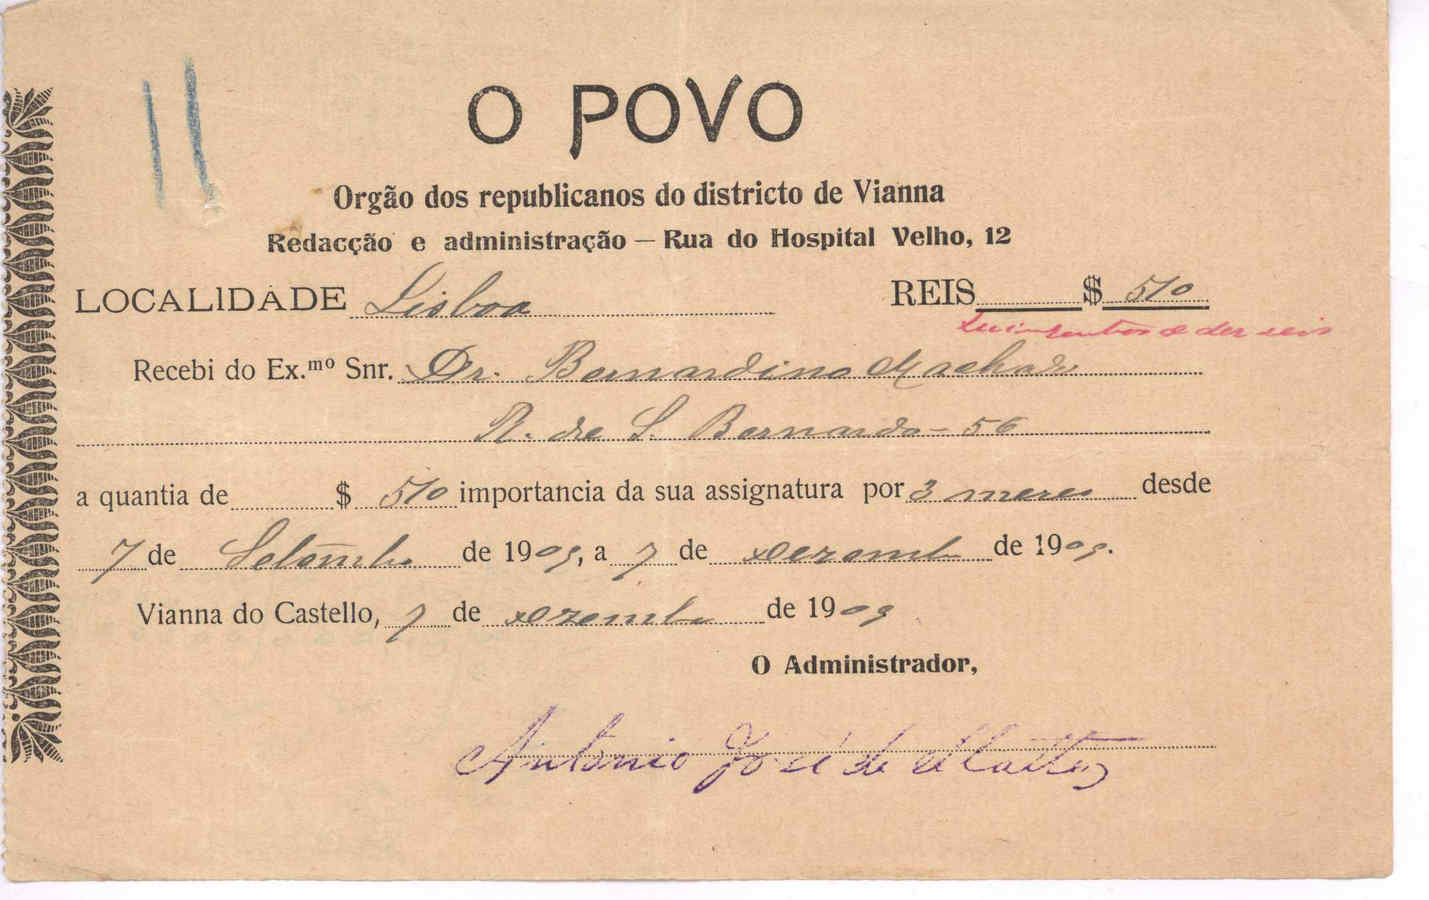 11
O POVO
Orgão dos republicanos do districto de Vianna
Redacção e administração — Rua do Hospital Velho, 12
LOCALIDADE Lisboa REIS $ 510
Quinhentos e dez reis
Recebi do Ex.mo Snr. Dr. Bernardino Machado
R. de S. Bernardo - 56
a quantia de $ 510 importancia da sua assignatura por 3 mezes desde
7 de Setembro de 1909, a 7 de Dezemb de 1909.
Vianna do Castello, 7 de Dezembr de 1909
O Administrador,
Antonio José de Mattos